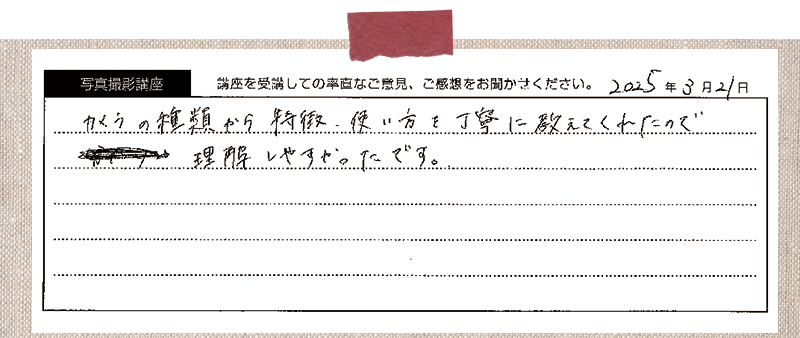 写真撮影講座 講座を受講しての率直なご意見、ご感想をお聞かせください。 2025年3月21日
カメラの種類から特徴、使い方を丁寧に教えてくれたので
理解しやすかったです。